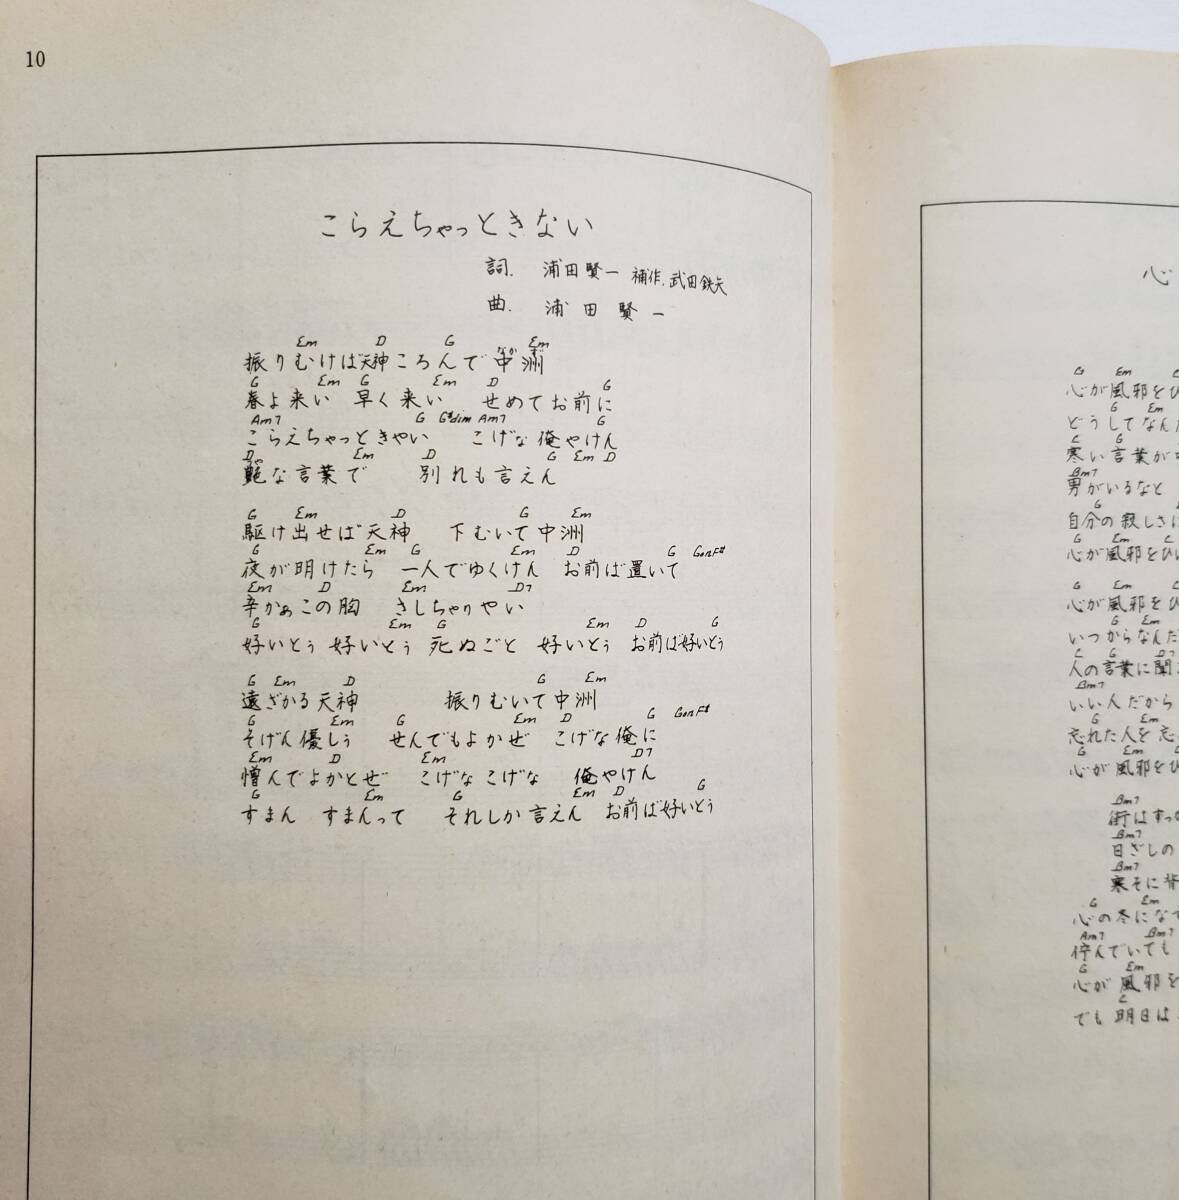 10
こらえちゃっときない
詞. 浦田賢一 補作.武田鉄矢
曲. 浦田賢一
Em D G Em
振りむけば天神ころんで中洲
なかす
G Em G Em D G
春よ来い 早く来い せめてお前に
Am7 G G#dim Am7 G
こらえちゃっときやい こげな俺やけん
D7 Em D G Em D
艶な言葉で 別れも言えん
G Em D G Em
駆け出せば天神 下むいて中洲
G Em G Em D G GonF#
夜が明けたら 一人でゆくけん お前ば置いて
Em D Em D7
辛かぁこの胸 きしちゃりやい
G Em G Em D G
好いとぅ 好いとぅ 死ぬごと 好いとぅ お前ば好いとぅ
G Em D G Em
遠ざかる天神 振りむいて中洲
G Em G Em D G GonF#
そげん優しぅ せんでもよかぜ こげな俺に
Em D Em D7
憎んでよかとぜ こげなこげな 俺やけん
G Em G Em D G
すまん すまんって それしか言えん お前ば好いとぅ
心
G Em C
心が風邪をひ
G Em
どうしてなんだ
C G
寒い言葉が
Bm7
男がいるなと
G
自分の寂しさに
G Em C
心が風邪をひ
G Em C
心が風邪をひ
G Em
いつからなんだ
C G D7
人の言葉に聞
Bm7
いい人だから
G Em
忘れた人を忘
G Em G
心が風邪をひ
Bm7
街はすっか
Bm7
日ざしの
Bm7
寒そに背
G Em
心の冬にな
Am7 Bm7
佇んでいても
G Em
心が風邪を
C
でも明日は